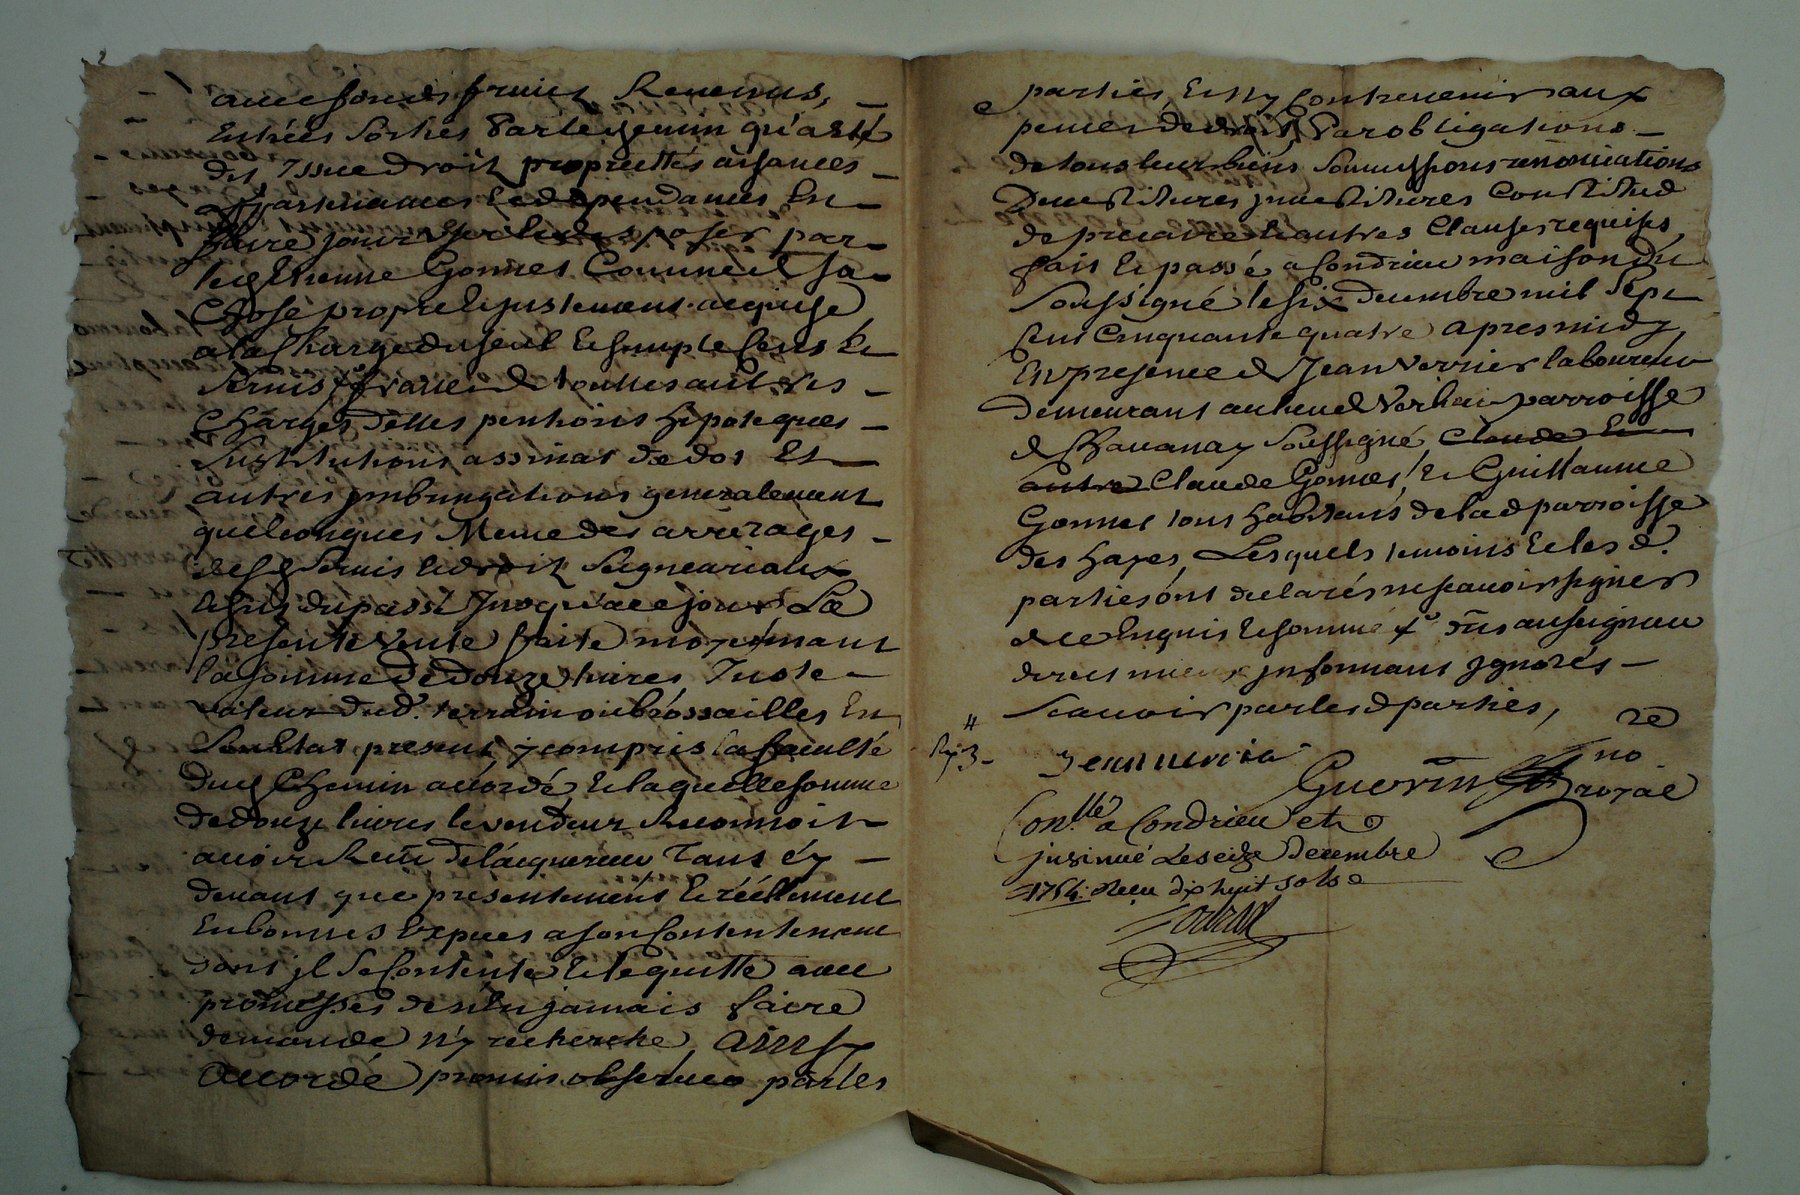 avec fonds fruits Revenus,
Entrées Sorties Par le chemin qu'a esté
dit Issue droit proprietés aisances
appartenances et dependances En
faire jouir User et disposer par
led Etienne Gonnet Comme de Sa
Chose propre et justement acquise
a la Charge du seul et simple Cens et
Servis franc de touttes autres
Charges dettes pentions hipoteques
Substitutions assinat de dot Et
autres generalement
quelconques Meme des arrerages
desd Servis et droit Seigneuriaux
du passé Jusqu'a ce jour La
presente vente faite moyenant
la somme de Douze livres Juste
valeur dud. terrain ou brossailles En
Son Etat present y compris la faculté
dud Chemin accordé et laquelle somme
de douze livres le vendeur Reconnoit
avoir Receu de l'acquereur Tant cy
devant que presentement et réellement
En bonnes Especes a son Contentement
dont jl Se Contente et le quitte avec
promesses de n'En jamais faire
demande n'y recherche, Ainsy
Accordé promis observer par les
parties Et n'y Contrevenir aux
peines de droit Par obligations
de tous leur biens Soumissions renonciations
Devestitures jnvestitures Constitut
de precaire et autres Clauses requises,
fait et passé a Condrieu maison du
Soussigné le six decembre mil Sept
Cent Cinquante quatre apres midy
En presence de Jean Verrier laboureur
demeurant au lieu de Verlieu parroisse
de Chavanay Soussigné Claude Et
autre Claude Gonnet et Guillaume
Gonnet tous habitants de lad parroisse
des hayes, Lesquels temoins et les d.
parties ont declarés ne scavoir signer
de ce Enquis et sommé dus au seigneur
direct mieux jnformant jgnorés
Scavoir par les d parties,
Jean
Guerin no re royal
Con.llé a Condrieu et
jnsinué Le seize Decembre
1754. Receu dix huit sols